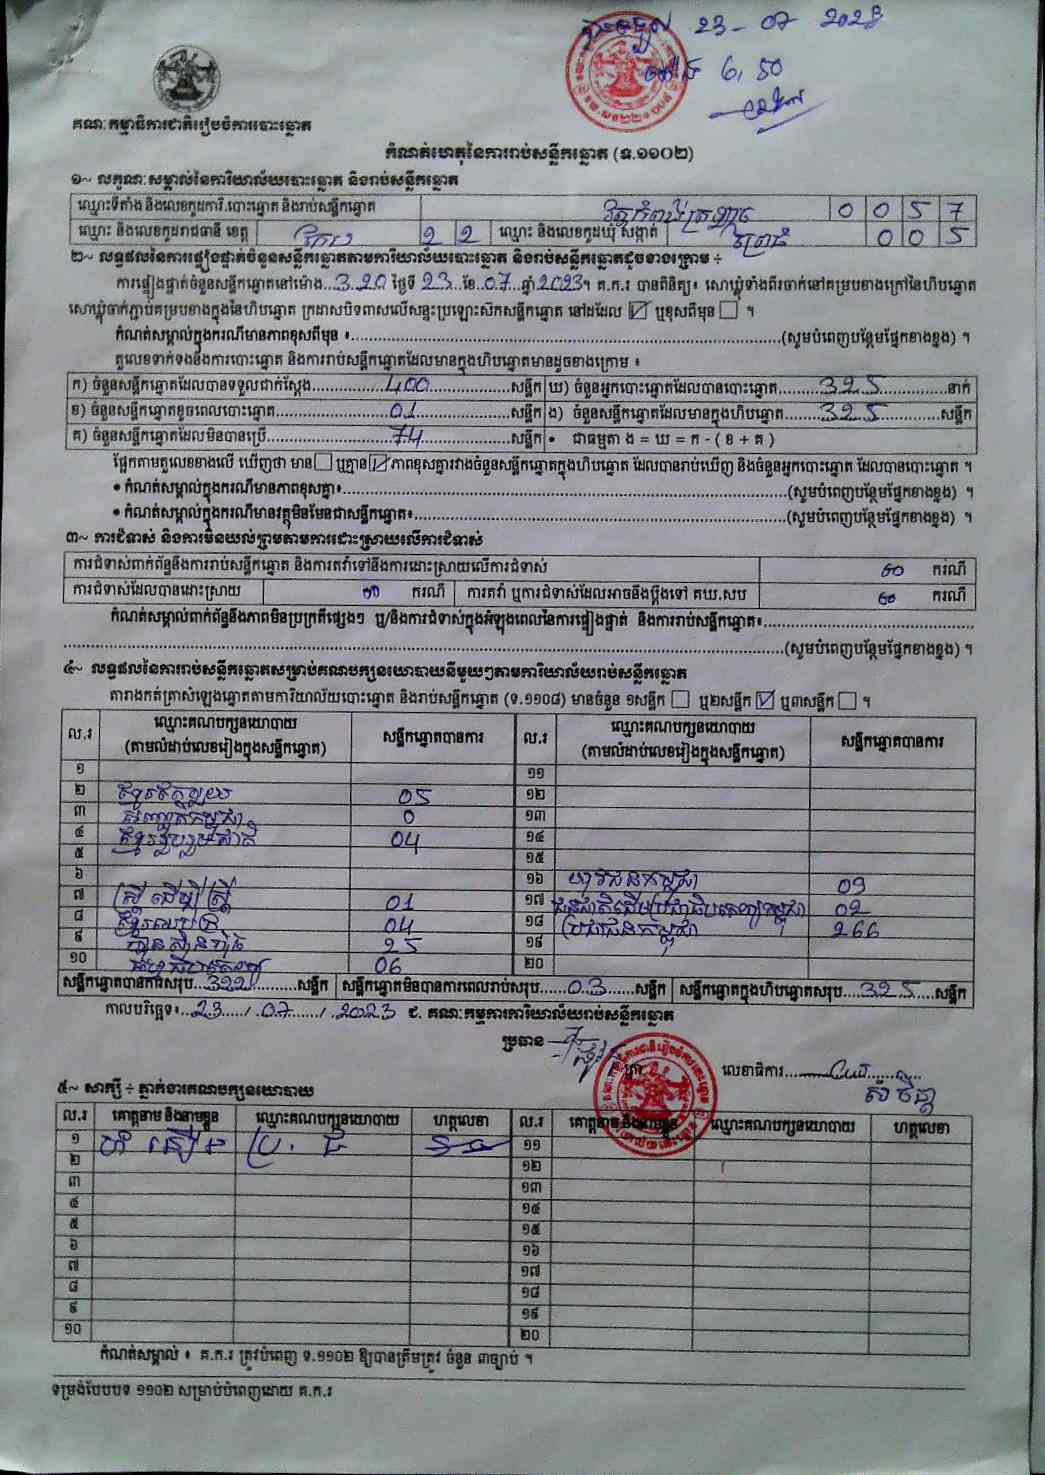 23-07 2023
6,50
គណៈកម្មាធិការជាតិរៀបចំការបោះឆ្នោត
កំណត់ហេតុនៃការរាប់សន្លឹកឆ្នោត (ទ.១១០២)
១~ លក្ខណៈសម្គាល់នៃការិយាល័យបោះឆ្នោត និងរាប់សន្លឹកឆ្នោត
ឈ្មោះទីតាំង និងលេខកូដការិ.បោះឆ្នោត និងរាប់សន្លឹកឆ្នោត 0 0 5 7
ឈ្មោះ និងលេខកូដរាជធានី ខេត្ត កែប 2 2 ឈ្មោះ និងលេខកូដឃុំ សង្កាត់ 0 0 5
២~ លទ្ធផលនៃការផ្ទៀងផ្ទាត់ចំនួនសន្លឹកឆ្នោតតាមការិយាល័យបោះឆ្នោត និងរាប់សន្លឹកឆ្នោតដូចខាងក្រោម ៖
ការផ្ទៀងផ្ទាត់ចំនួនសន្លឹកឆ្នោតនៅម៉ោង..3.20 ថ្ងៃទី 23..ខែ.07..ឆ្នាំ 2023។ គ.ក.រ បានពិនិត្យ៖ សោឃ្លុំទាំងពីរចាក់នៅគម្របខាងក្រៅនៃហិបឆ្នោត
សោឃ្លុំចាក់ភ្ជាប់គម្របខាងក្នុងនៃហិបឆ្នោត ក្រដាសបិទពាសលើសន្ទះប្រឡោះស៊កសន្លឹកឆ្នោត នៅដដែល ☑ ឬខុសពីមុន ☐ ។
កំណត់សម្គាល់ក្នុងករណីមានភាពខុសពីមុន ៖..........(សូមបំពេញបន្ថែមផ្នែកខាងខ្នង) ។
តួលេខទាក់ទងនឹងការបោះឆ្នោត និងការរាប់សន្លឹកឆ្នោតដែលមានក្នុងហិបឆ្នោតមានដូចខាងក្រោម ៖
ក) ចំនួនសន្លឹកឆ្នោតដែលបានទទួលជាក់ស្តែង.....400.....សន្លឹក ឃ) ចំនួនអ្នកបោះឆ្នោតដែលបានបោះឆ្នោត.....325.....នាក់
ខ) ចំនួនសន្លឹកឆ្នោតខូចពេលបោះឆ្នោត.....01.....សន្លឹក ង) ចំនួនសន្លឹកឆ្នោតដែលមានក្នុងហិបឆ្នោត.....325.....សន្លឹក
គ) ចំនួនសន្លឹកឆ្នោតដែលមិនបានប្រើ.....74.....សន្លឹក • ជាធម្មតា ង = ឃ = ក - ( ខ + គ )
ផ្អែកតាមតួលេខខាងលើ ឃើញថា មាន ☐ ឬគ្មាន ☑ ភាពខុសគ្នារវាងចំនួនសន្លឹកឆ្នោតក្នុងហិបឆ្នោត ដែលបានរាប់ឃើញ និងចំនួនអ្នកបោះឆ្នោត ដែលបានបោះឆ្នោត ។
• កំណត់សម្គាល់ក្នុងករណីមានភាពខុសគ្នា៖..........(សូមបំពេញបន្ថែមផ្នែកខាងខ្នង) ។
• កំណត់សម្គាល់ក្នុងករណីមានវត្ថុមិនមែនជាសន្លឹកឆ្នោត៖..........(សូមបំពេញបន្ថែមផ្នែកខាងខ្នង) ។
៣~ ការជំទាស់ និងការមិនយល់ព្រមតាមការដោះស្រាយលើការជំទាស់
ការជំទាស់ពាក់ព័ន្ធនឹងការរាប់សន្លឹកឆ្នោត និងការតវ៉ាទៅនឹងការដោះស្រាយលើការជំទាស់ 00 ករណី
ការជំទាស់ដែលបានដោះស្រាយ 00 ករណី ការតវ៉ា ឬការជំទាស់ដែលអាចនឹងប្តឹងទៅ គឃ.សប 00 ករណី
កំណត់សម្គាល់ពាក់ព័ន្ធនឹងភាពមិនប្រក្រតីផ្សេងៗ ឬ/និងការជំទាស់ក្នុងអំឡុងពេលនៃការផ្ទៀងផ្ទាត់ និងការរាប់សន្លឹកឆ្នោត៖..........
..........(សូមបំពេញបន្ថែមផ្នែកខាងខ្នង) ។
៤~ លទ្ធផលនៃការរាប់សន្លឹកឆ្នោតសម្រាប់គណបក្សនយោបាយនីមួយៗតាមការិយាល័យរាប់សន្លឹកឆ្នោត
តារាងកត់ត្រាសំឡេងឆ្នោតតាមការិយាល័យបោះឆ្នោត និងរាប់សន្លឹកឆ្នោត (ទ.១១០៨) មានចំនួន ១សន្លឹក ☐ ឬ២សន្លឹក ☑ ឬ៣សន្លឹក ☐ ។
ល.រ ឈ្មោះគណបក្សនយោបាយ (តាមលំដាប់លេខរៀងក្នុងសន្លឹកឆ្នោត) សន្លឹកឆ្នោតបានការ ល.រ ឈ្មោះគណបក្សនយោបាយ (តាមលំដាប់លេខរៀងក្នុងសន្លឹកឆ្នោត) សន្លឹកឆ្នោតបានការ
១ ១១
២ 05 ១២
៣ 0 ១៣
៤ ខ្មែររួបរួមជាតិ 04 ១៤
៥ ១៥
៦ ១៦ យុវជនកម្ពុជា 09
៧ ស្រី ដើម្បី ស្រ្តី 01 ១៧ ជនជាតិដើមប្រជាធិបតេយ្យកម្ពុជា 02
៨ 04 ១៨ ប្រជាជនកម្ពុជា 266
៩ ហ៊្វុនស៊ិនប៉ិច 25 ១៩
១០ 06 ២០
សន្លឹកឆ្នោតបានការសរុប..322.....សន្លឹក សន្លឹកឆ្នោតមិនបានការពេលរាប់សរុប.....03.....សន្លឹក សន្លឹកឆ្នោតក្នុងហិបឆ្នោតសរុប...325...សន្លឹក
កាលបរិច្ឆេទ៖..23..../.07....../..2023 ជ. គណៈកម្មការការិយាល័យរាប់សន្លឹកឆ្នោត
ប្រធាន លេខាធិការ..........
៥~ សាក្សី ÷ ភ្នាក់ងារគណបក្សនយោបាយ
ល.រ គោត្តនាម និងនាមខ្លួន ឈ្មោះគណបក្សនយោបាយ ហត្ថលេខា ល.រ គោត្តនាម និងនាមខ្លួន ឈ្មោះគណបក្សនយោបាយ ហត្ថលេខា
១ ប្រ. ជ ១១
២ ១២
៣ ១៣
៤ ១៤
៥ ១៥
៦ ១៦
៧ ១៧
៨ ១៨
៩ ១៩
១០ ២០
កំណត់សម្គាល់ ៖ គ.ក.រ ត្រូវបំពេញ ទ.១១០២ ឱ្យបានត្រឹមត្រូវ ចំនួន ៣ច្បាប់ ។
ទម្រង់បែបបទ ១១០២ សម្រាប់បំពេញដោយ គ.ក.រ